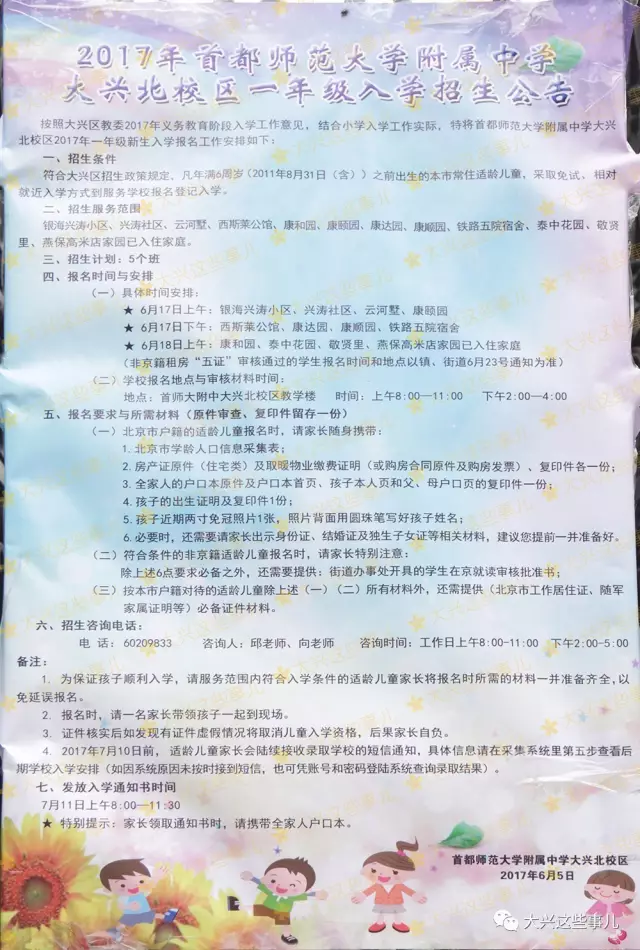 2017年首都师范大学附属中学
大兴北校区一年级入学招生公告
按照大兴区教委2017年义务教育阶段入学工作意见，结合小学入学工作实际，特将首都师范大学附属中学大兴
北校区2017年一年级新生入学报名工作安排如下：
一、招生条件
符合大兴区招生政策规定，凡年满6周岁（2011年8月31日（含））之前出生的本市常住适龄儿童，采取免试、相对
就近入学方式到服务学校报名登记入学。
二、招生服务范围
银海兴涛小区、兴涛社区、云河墅、西斯莱公馆、康和园、康颐园、康达园、康顺园、铁路五院宿舍、泰中花园、敬贤
里、燕保高米店家园已入住家庭。
三、招生计划：5个班
四、报名时间与安排
（一）具体时间安排：
★ 6月17日上午：银海兴涛小区、兴涛社区、云河墅、康颐园
★ 6月17日下午：西斯莱公馆、康达园、康顺园、铁路五院宿舍
★ 6月18日上午：康和园、泰中花园、敬贤里、燕保高米店家园已入住家庭
（非京籍租房“五证”审核通过的学生报名时间和地点以镇、街道6月23号通知为准）
（二）学校报名地点与审核材料时间：
地点：首师大附中大兴北校区教学楼 时间：上午8:00—11:00 下午2:00—4:00
五、报名要求与所需材料（原件审查、复印件留存一份）
（一）北京市户籍的适龄儿童报名时，请家长随身携带：
1.北京市学龄人口信息采集表；
2.房产证原件（住宅类）及取暖物业缴费证明（或购房合同原件及购房发票）、复印件各一份；
3.全家人的户口本原件及户口本首页、孩子本人页和父、母户口页的复印件一份；
4.孩子的出生证明及复印件1份；
5.孩子近期两寸免冠照片1张，照片背面用圆珠笔写好孩子姓名；
6.必要时，还需要请家长出示身份证、结婚证及独生子女证等相关材料，建议您提前一并准备好。
（二）符合条件的非京籍适龄儿童报名时，请家长特别注意：
除上述6点要求必备之外，还需要提供：街道办事处开具的学生在京就读审核批准书；
（三）按本市户籍对待的适龄儿童除上述（一）（二）所有材料外，还需提供（北京市工作居住证、随军
家属证明等）必备证件材料。
六、招生咨询电话：
电 话：60209833 咨询人：邱老师、向老师 咨询时间：工作日上午8:00-11:00 下午2:00-5:00
备注：
1. 为保证孩子顺利入学，请服务范围内符合入学条件的适龄儿童家长将报名时所需的材料一并准备齐全，以
免延误报名。
2. 报名时，请一名家长带领孩子一起到现场。
3. 证件核实后如发现有证件虚假情况将取消儿童入学资格，后果家长自负。
4. 2017年7月10日前，适龄儿童家长会陆续接收录取学校的短信通知，具体信息请在采集系统里第五步查看后
期学校入学安排（如因系统原因未按时接到短信，也可凭账号和密码登陆系统查询录取结果）。
七、发放入学通知书时间
7月11日上午8:00—11:30
★ 特别提示：家长领取通知书时，请携带全家人户口本。
首都师范大学附属中学大兴北校区
2017年6月5日
大兴这些事儿